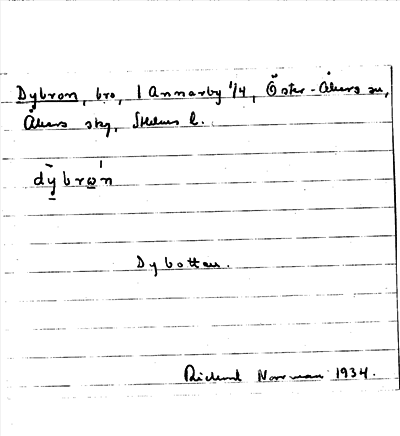 Dybron, bro, 1 Annarby 1/4, Öster-Åkers sn,
Åkers skg, Sthlms l.
dȳbrωn
Dybotten.
Rickard Norrman 1934.